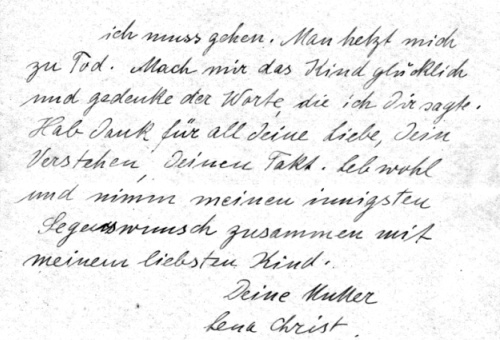 ich muss gehen. Man hetzt mich
zu Tod. Mach mir das Kind glücklich
und gedenke der Worte, die ich Dir sagte.
Hab Dank für all Deine Liebe, Dein
Verstehen, Deinen Takt. Leb wohl
und nimm meinen innigsten
Segenswunsch zusammen mit
meinem liebsten Kind.
Deine Mutter
Lena Christ.